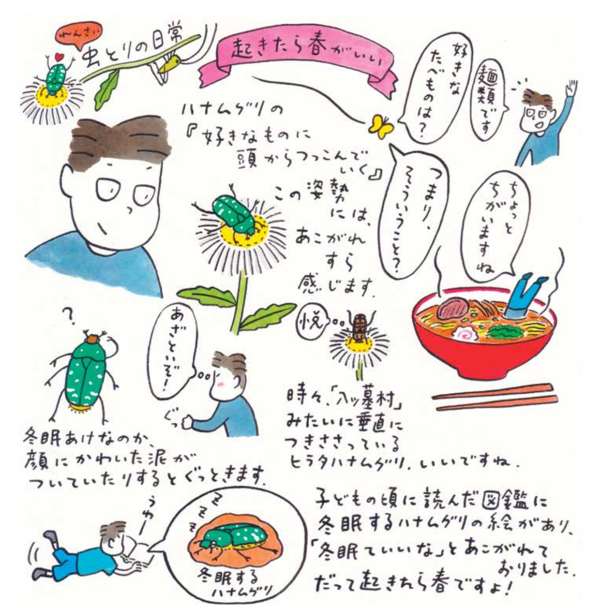 れんさい
虫とりの日常
起きたら春がいい
好きな
たべものは？
麺類です
ハナムグリの
『好きなものに
頭からつっこんで
いく』
この姿勢
には、
あこがれ
すら
感じます。
つまり、
そういうこと？
ちょっと
ちがいますね
？
あざといぞ！
ぐっ
悦
冬眠あけなのか、
顔にかわいた泥が
ついていたりするとぐっときます。
時々、「八ッ墓村」
みたいに垂直に
つきささっている
ヒラタハナムグリ、いいですね。
うわー
ZZZZ
冬眠する
ハナムグリ
子どもの頃に読んだ図鑑に
冬眠するハナムグリの絵があり、
「冬眠ていいな」とあこがれて
おりました。
だって起きたら春ですよ！